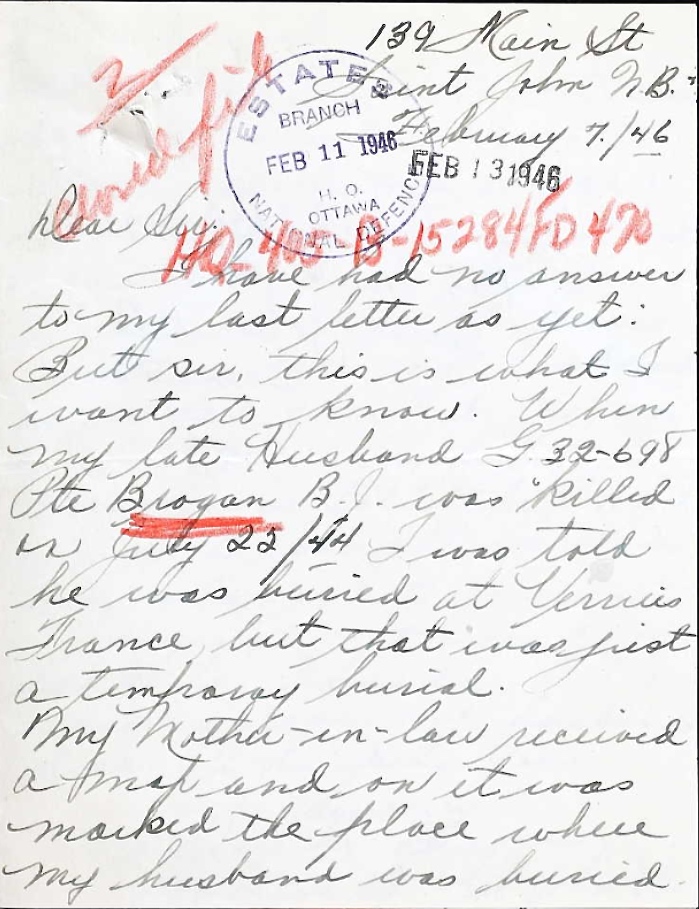 139 Main St
Saint John N.B.
February 7./46
2
ESTATES
BRANCH
FEB 11 1946
H. O.
OTTAWA
NATIONAL DEFENCE
FEB 13 1946
Dear Sir:
HQ-405-B-15284 FD 470
I have had no answer
to my last letter as yet:
But sir, this is what I
want to know. When
my late Husband G. 32-698
Pte Brogan B.J. was killed
on July 22/44 I was told
he was buried at
France, but that was just
a temporay burial.
My Mother-in-law received
a map and on it was
marked the place where
my husband was buried.